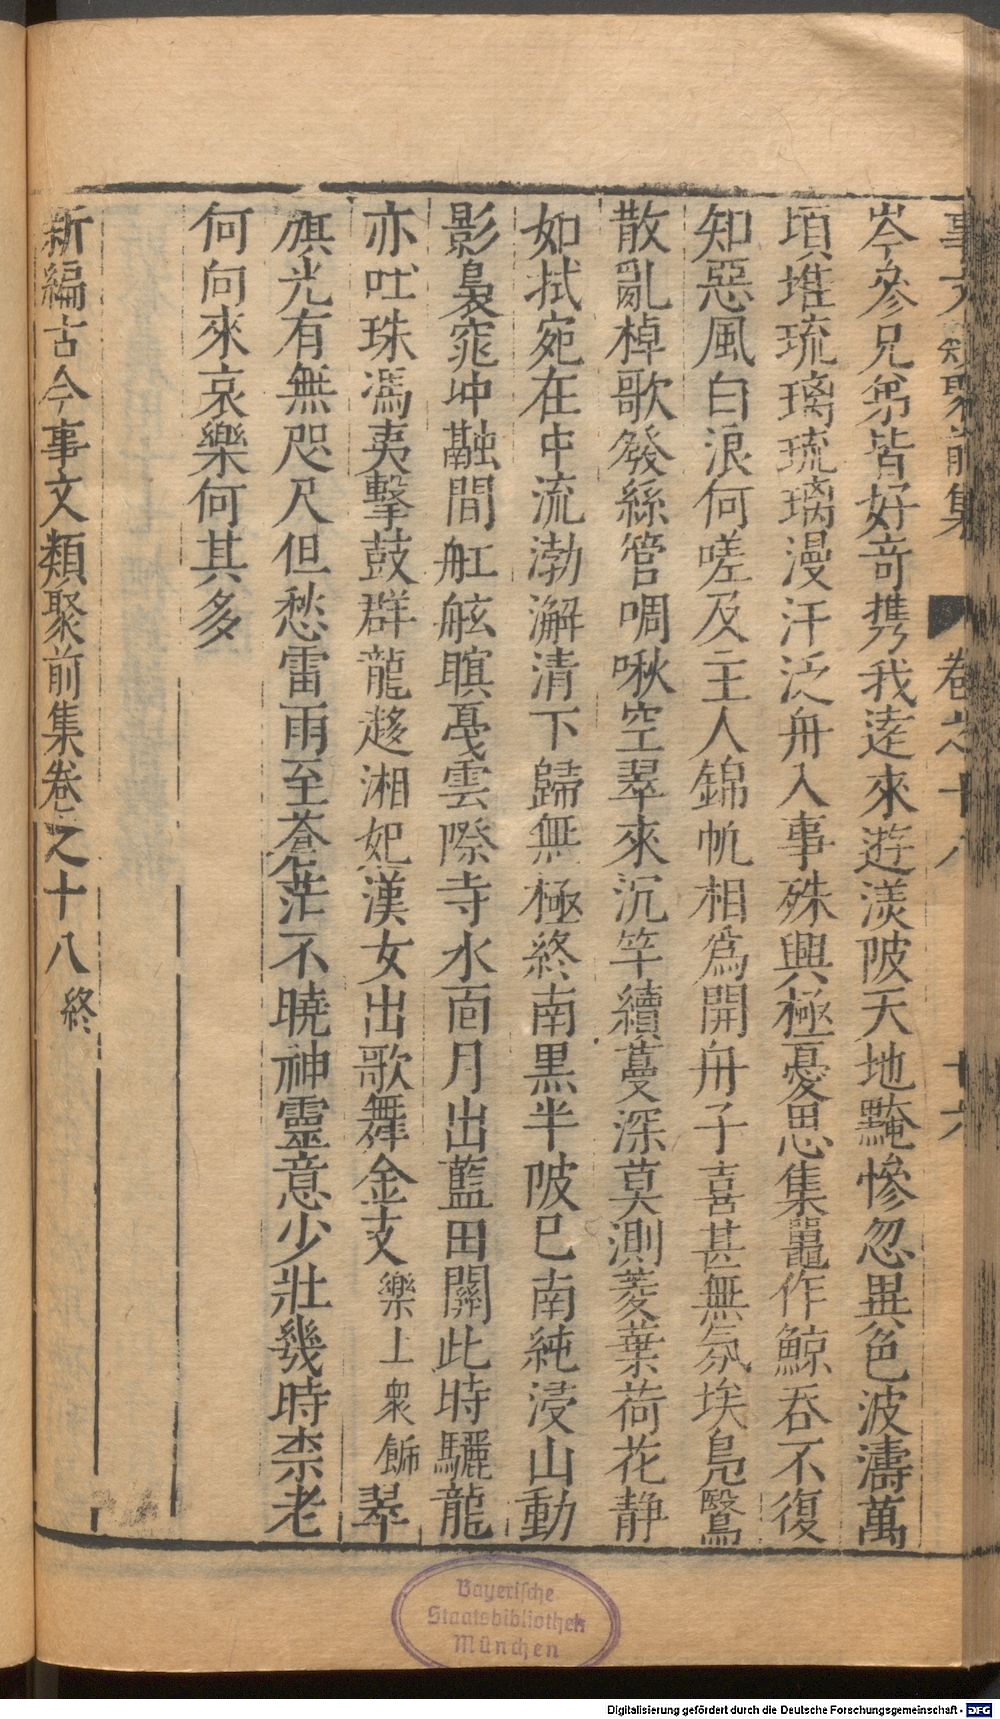 事文類聚前集 卷之十八 十六
岑參兄弟皆好竒携我逺來遊渼陂天地黤慘忽異色波濤萬
頃堆琉璃琉璃漫汗泛舟入事殊興極憂思集鼉作鯨吞不復
知惡風白浪何嗟及主人錦帆相爲開舟子喜甚無氛埃鳬鷖
散亂棹歌發絲管啁啾空翠來沉竿續蔓深莫測菱葉荷花静
如拭宛在中流渤澥清下歸無極終南黒半陂已南純浸山動
影裊窕冲融間舡舷瞑戛雲際寺水面月出藍田關此時驪龍
亦吐珠馮夷擊鼓群龍趍湘妃漢女出歌舞金支樂上衆飾翠
旗光有無咫尺但愁雷雨至蒼茫不曉神靈意少壯幾時柰老
何向來哀樂何其多
新編古今事文類聚前集卷之十八終
Bayerische
Staatsbibliothek
München
Digitalisierung gefördert durch die Deutsche Forschungsgemeinschaft - DFG